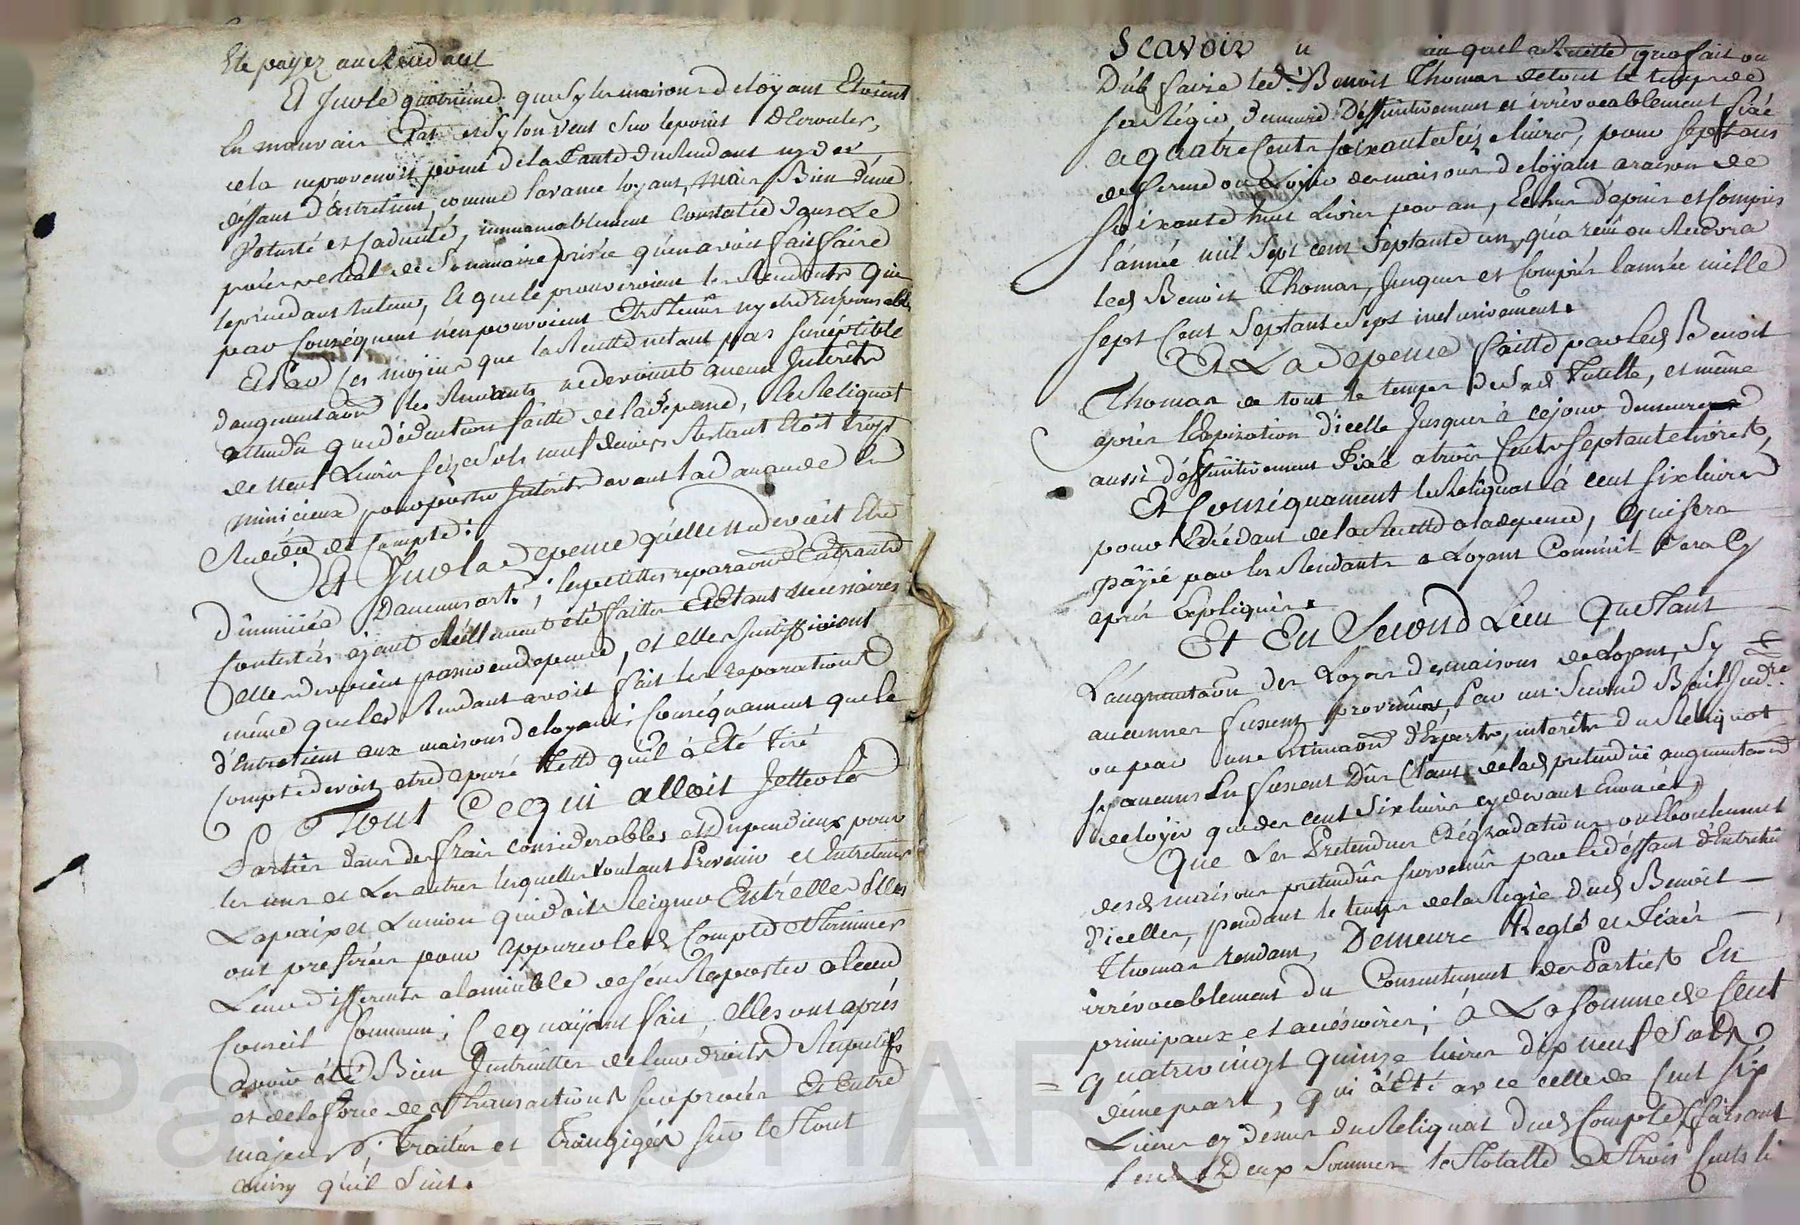 Ete payez au Rendant
Et Sur le quatrieme que Sy les maisons de loyant Etoient
En mauvais Etat et Sy l'on veut Sur le point D'Ecrouler,
cela ne provenoit point de la faute du Rendant ny de
deffaut d'Entretien, comme l'avance loyant, mais Bien de
Vetusté et Caducité, Constatée dans Le
procés verbal de Sommaire prisée qu'en avoit fait faire
le Rendant que
par Conséquent n'en pouvoient Etre tenus ny Responsables
Et Par Ces moyens que la Recette n'etant pas susceptible
d'augmentaon les Rendants ne devoient aucun Interêts
attendu que déduction faitte de la dépense, le Reliquat
de neuf Livres Seize Sols neuf deniers Restant Etoit trop
minicieux pour porter Interêts avant la demande En
Reddition de Compte.
Et Sur la depense qu'elle ne devoit Etre
diminuée D'aucuns art.; les petittes reparaons Entrautre
Contestées ayant Réellement été faittes Et Etant necessaires
elles devoient passer en depense, et elles Justiffioient
même que led Rendant avoit fait les reparations
d'Entretient aux maisons de loyant; Conséquament que le
Compte devoit etre apuré tel qu'il à Eté Tiré
Tout Cecqui alloit Jetter les
Parties dans des frais considerables et dispendieux pour
les unes et Les autres lesquelles Voulant Prevenir et Entretenir
La paix et L'union qui doit Reigner Entr'elles Elles
ont preferé pour appurer led Compte et terminer
Leurs differents a l'amiable de s'en Reporter à leur
Conseil Commun; Ce qu'ayant fait, elles ont aprés
avoir été Bien Instruittes de leurs droits Respectifs
et de la force des Transactions Sur procés Et Entre
majeurs, Traitées et Transigées Sur le Tout
ainsy qu'il Suit.
Scavoir au que la Recette qu'a fait ou
Dub faire led. Benoit Thomas de tout le temps de
sa Régie, demeure Déffinitivement et irrévocablement fixé
a quatre Cents Soixante Seize livres, pour Sept ans
de ferme ou Loyer des maisons de loyant a raison de
Soixante huit Livres par an, Echus Depuis et Compris
l'année mil Sept cent Septante un, qu'a reçu ou Rendra
led Benoit Thomas, Jusques et Compris l'année mille
sept Cent Septante Sept inclusivement.
Et La depense faitte par led Benoit
Thomas de tout le temps de Sad Tutelle, et même
après l'Expiration d'icelle Jusques à ce jour demeure
aussi déffinitivement Fixée a trois Cents Septante livres,
Et Conséquament le Reliquat à Cent Six livres
pour l'Excédant de la Recette a la depense, qui Sera
payée par les Rendants a Loyant Comm'il Sera Cy
après Expliqué.
Et En Second Lieu Que Tant
L'augmentaon des Loyers des maisons de Loyant, Sy
aucunes fussent provenües, Par un Second Bail
ou par une estimaon d'Experts, interêts du Reliquat
sy aucuns En fussent Dûs Tant de lad prétendüe augmentaon
de loyer que des cent Six livres cy devant Enoncées
Que Les Prétendues Dégradations ou Eboulements
desd maisons prétendûs Survenus par le déffaut d'Entretien
d'icelles, pendant le temps de la Régie dud Benoit
Thomas rendant, Demeure Reglé et Fixés
irrévocablement du Consentement des Parties En
principaux et accéssoires, à La Somme de Cent
quatrevingt quinze livres dix neuf Sols
d'une part, qui à Eté avec celle de Cent Six
Livres cy dessus du Reliquat dud Compte, faisant
lesd Deux Sommes le Totalle de Trois Cents li
Pascal CHAREYRON